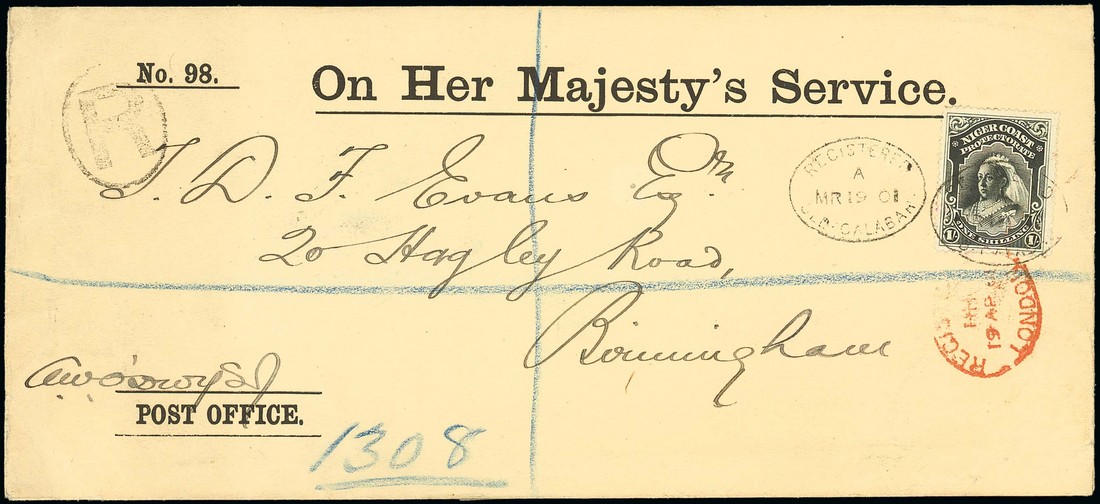 No. 98.
On Her Majesty's Service.
R
J. D. F. Evans Esqre
20 Hagley Road,
Birmingham
REGISTERED
A
MR 19 01
OLD-CALABAR
NIGER COAST
PROTECTORATE
1/- ONE SHILLING 1/-
LONDON
19 AP
POST OFFICE.
1308